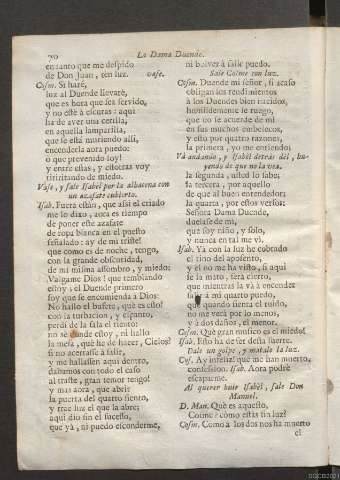 70
La Dama Duende.
entanto que me despido
de Don Juan, ten luz. vase.
Cosm. Si haré,
luz al Duende llevaré,
que es hora que sea servido,
y no esté à escuras: aqui
ha de aver una cerilla,
en aquella lamparilla,
que se está muriendo allí,
encenderla aora puedo:
ò que prevenido soy!
y entre estas, y essotras voy
tiritando de miedo.
Vase, y sale Isabel por la alhacena con
un azafate cubierto.
Isab. Fuera están, que assi el criado
me lo dixo, aora es tiempo
de poner este azafate
de ropa blanca en el puesto
señalado: ay de mi triste!
que como es de noche, tengo,
con la grande obscuridad,
de mi misma assombro, y miedo:
Valgame Dios! que temblando
estoy: el Duende primero
soy que se encomienda à Dios:
No hallo el bufete, què es esto?
con la turbacion, y espanto,
perdí de la sala el tiento:
no sè donde estoy, ni hallo
la mesa, què he de hacer, Cielos?
si no acertasse à salir,
y me hallassen aqui dentro,
dabamos con todo el caso
al traste, gran temor tengo!
y mas aora, que abrir
la puerta del quarto siento,
y trae luz el que la abre;
aqui dio fin el sucesso,
que yà, ni puedo esconderme,
ni bolver à salir puedo.
Sale Cosme con luz.
Cosm. Duende mi señor, si acaso
obligan los rendimientos
à los Duendes bien nacidos,
humildemente le ruego,
que no se acuerde de mi
en sus muchos embelecos,
y esto por quatro razones,
la primera, yo me entiendo:
Và andando, y Isabel detràs dél, huyendo
de que no la vea.
la segunda, usted lo sabe;
la tercera, por aquello
de que al buen entendedor;
la quarta, por estos versos:
Señora Dama Duende,
duelase de mi,
que soy niño, y solo,
y nunca en tal me ví.
Isab. Ya con la luz he cobrado
el tino del aposento,
y el no me ha visto, si aqui
se la mato, serà cierto,
que mientras la và à encender
à mi quarto puedo,
que quando sienta el ruido,
no me verá por lo menos,
y à dos daños, el menor.
Cosm. Què gran musico es el miedo!
Isab. Esto ha de ser desta suerte.
Dale un golpe, y matale la luz.
Cosm. Ay infeliz! que me han muerto,
confession. Isab. Aora podrè
escaparme.
Al querer huir Isabel, sale Don
Manuel.
D. Man. Què es aquesto,
Cosme? còmo estás sin luz?
Cosm. Como à los dos nos ha muerto
el